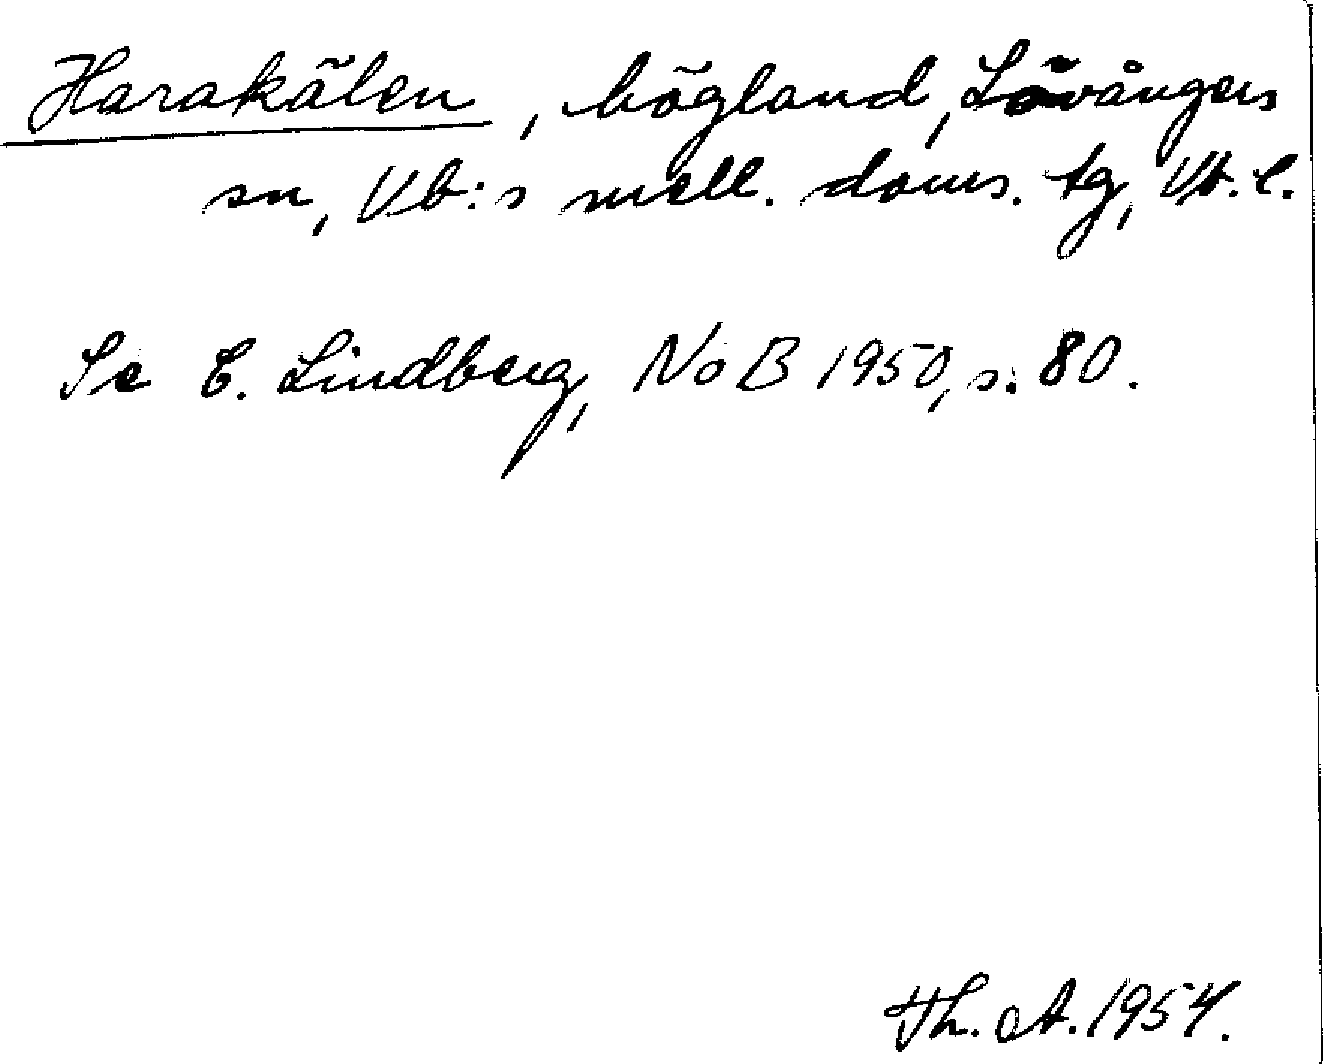 Harakälen, högland, Lövångers
sn, Vb:s mell. doms. tg, Vb. l.
Se E. Lindberg, NoB 1950, s. 80.
Th. A. 1954.